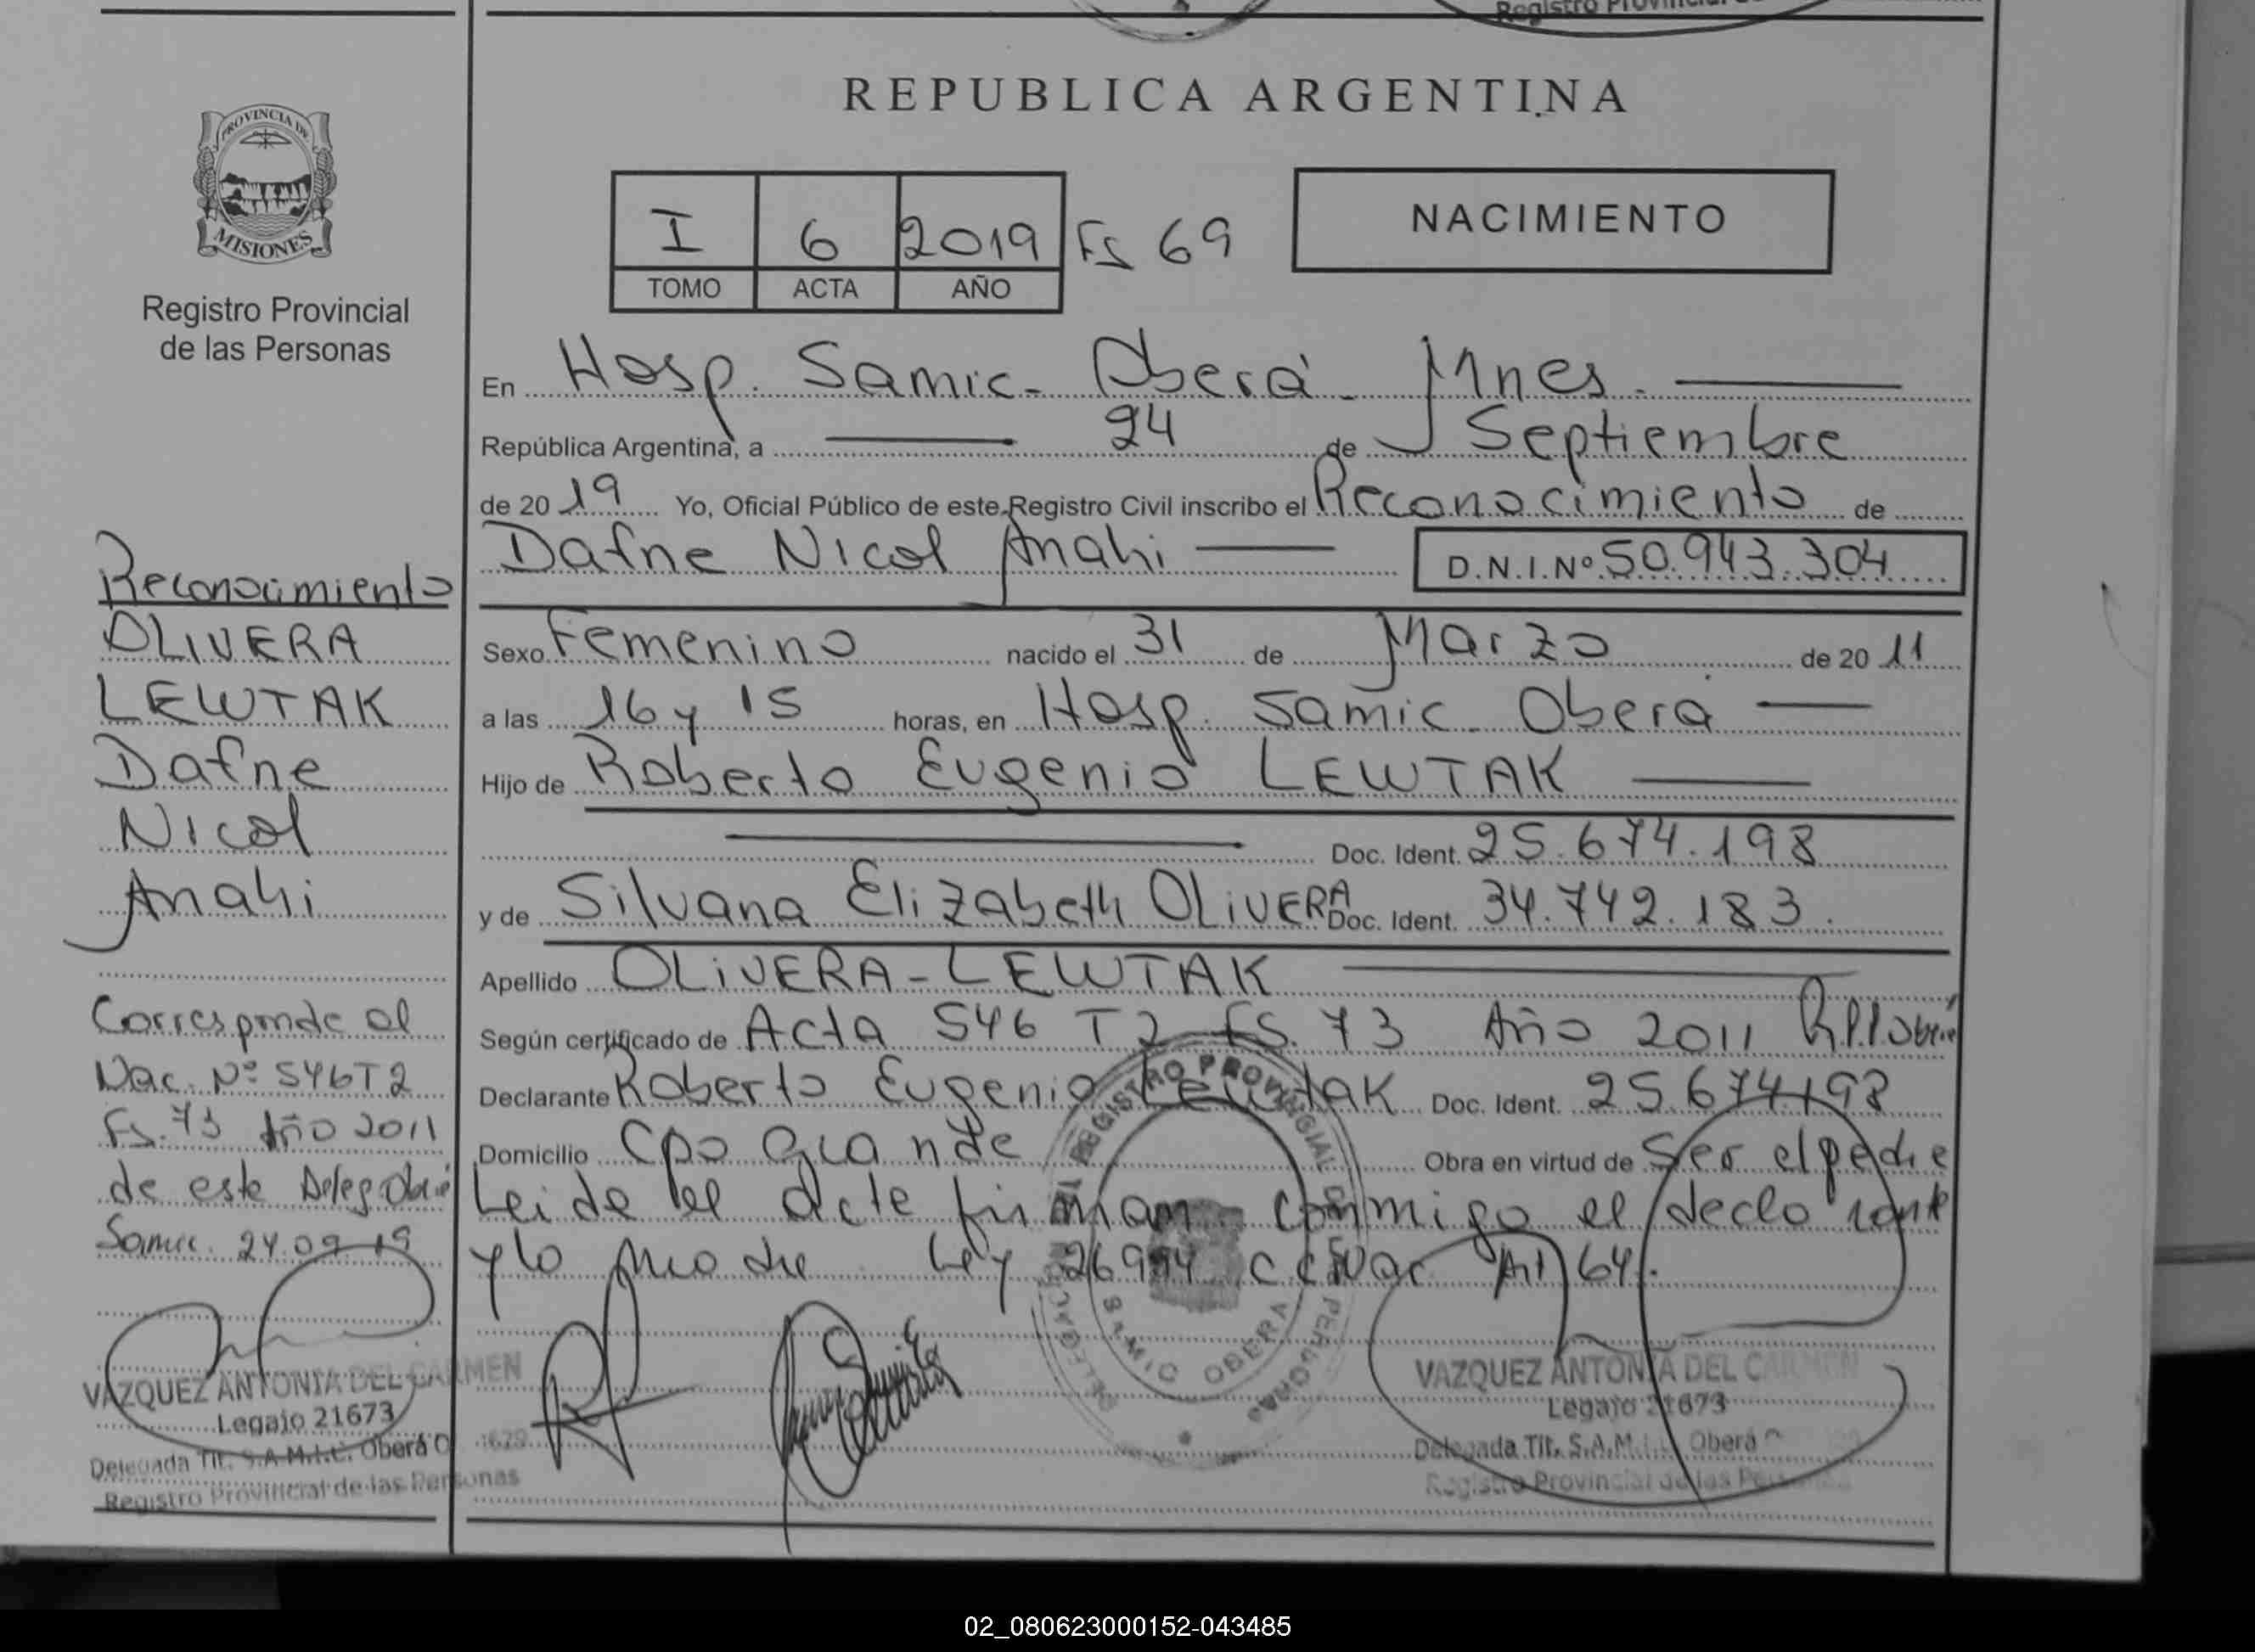 Registro Provincial
REPUBLICA ARGENTINA
PROVINCIA DE
MISIONES
Registro Provincial
de las Personas
I 6 2019 Fs 69
TOMO ACTA AÑO
NACIMIENTO
En Hosp. Samic - Oberá - Mnes.
República Argentina, a 24 de Septiembre
de 2019 Yo, Oficial Público de este Registro Civil inscribo el Reconocimiento de
Dafne Nicol Anahi D.N.I. Nº 50.943.304
Sexo Femenino nacido el 31 de Marzo de 2011
a las 16 y 15 horas, en Hosp. Samic - Oberá
Hijo de Roberto Eugenio LEWTAK
Doc. Ident. 25.674.198
y de Silvana Elizabeth OLIVERA Doc. Ident. 34.742.183.
Apellido OLIVERA - LEWTAK
Según certificado de Acta 546 T2 Fs. 73 Año 2011
Declarante Roberto Eugenio Lewtak Doc. Ident. 25.674198
Domicilio Cpo Grande Obra en virtud de Ser el padre
Leida el acta firman conmigo el declarante
y la madre Ley 26994 Art 64.
Reconocimiento
OLIVERA
LEWTAK
Dafne
Nicol
Anahi
Corresponde al
Nac. Nº 546 T2
Fs. 73 Año 2011
de este Deleg Oberá
Samic. 24.09.19
VAZQUEZ ANTONIA DEL CARMEN
Legajo 21673
Delegada Tit. S.A.M.I.C. Oberá
Registro Provincial de las Personas
REGISTRO PROVINCIAL DE LAS PERSONAS
SAMIC OBERA
VAZQUEZ ANTONIA DEL CARMEN
Legajo 21673
Delegada Tit. S.A.M.I.C. Oberá
Registro Provincial de las Personas
02_080623000152-043485